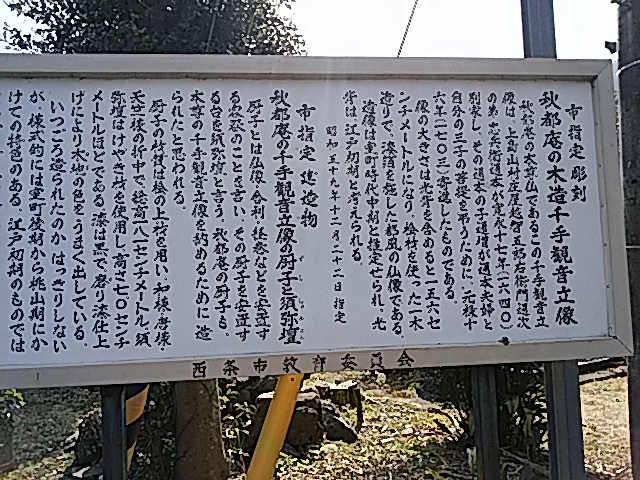 市指定 彫刻
秋都庵の木造千手観音立像
秋都庵の本尊仏であるこの千手観音立
像は、上島山村庄屋越智五郎右衛門通次
の弟七兵衛通本が寛永十七年(一六四〇)
別家し、その通本の子道増が通本夫婦と
自分の三子の菩提を弔うために、元禄十
六年(一七〇三)寄進したものである。
像の大きさは光背を含めると一五六・七
センチメートルになり、桧材を使った一木
造りで、漆箔を施した都風の仏像である。
造像は室町時代中期と推定せられ、光
背は江戸初期と考えられる。
昭和五十九年十二月二十二日 指定
市指定 建造物
秋都庵の千手観音立像の厨子と須弥壇
厨子とは仏像・舎利・経巻などを安置す
る容器のことを言い、その厨子を安置す
る台を須弥壇と言う。秋都庵の厨子も、
本尊の千手観音立像を納めるために造
られたと思われる。
厨子の材質は桧の上材を用い、和様・唐様・
天竺様の折中で、総高一八一センチメートル、須
弥壇はけやき材を使用し、高さ七〇センチ
メートルほどである。漆は黒で、磨り漆仕上
げにより木地の色をうまく出している。
いつごろ造られたのかはっきりしない
が、様式的には室町後期から桃山期にか
けての特色のある、江戸初期のものでは
西条市教育委員会